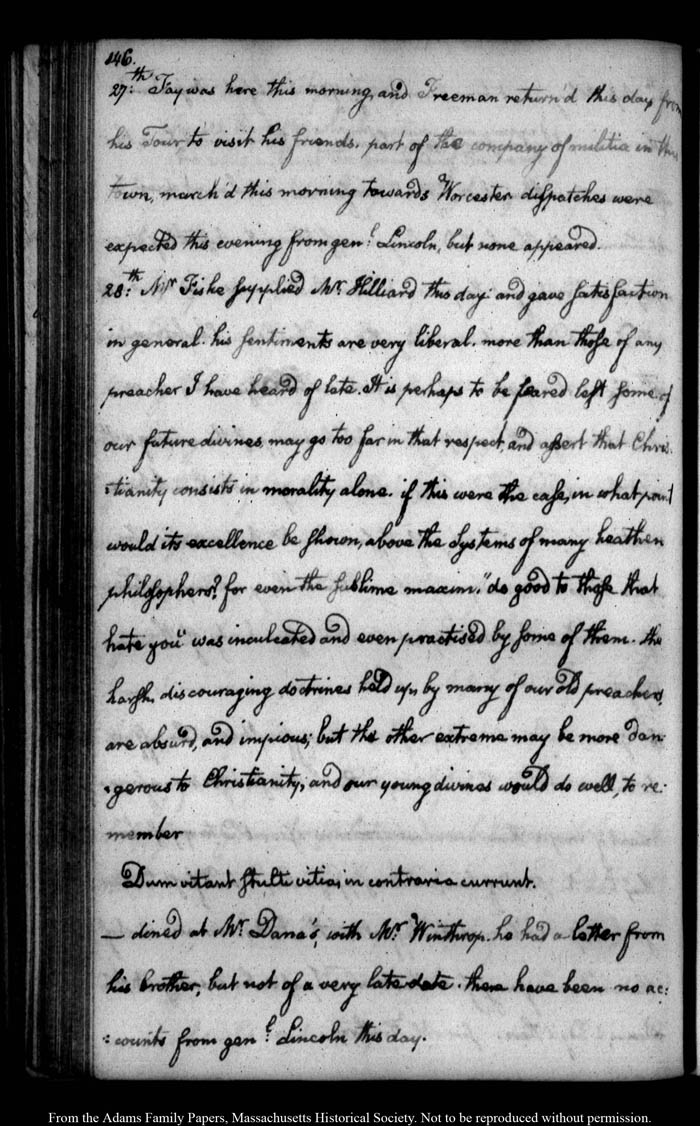 146.
27:th Fay was here this morning, and Freeman return'd this day from
his Tour to visit his friends. part of the company of militia in this
town, march'd this morning towards Worcester dispatches were
expected this evening from genl. Lincoln, but none appeared.
28:th Mr. Fiske supplied Mr. Hilliard this day and gave satisfaction
in general. his sentiments are very liberal. more than those of any
preacher I have heard of late. It is perhaps to be feared lest some of
our future divines may go too far in that respect, and assert that Chris:
:tianity consists in morality alone. if this were the case, in what point
would its excellence be shown, above the Systems of many heathen
philosophers? for even the sublime maxim, "do good to those that
hate you" was inculcated and even practised by some of them. the
harsh, discouraging doctrines held up by many of our old preachers,
are absurd, and impious; but the other extreme may be more dan:
:gerous to Christianity; and our young divines would do well, to re:
member
Dum vitant stulti vitia, in contraria currunt.
— dined at Mr. Dana's, with Mr. Winthrop. he had a letter from
his brother, but not of a very late date. there have been no ac:
:counts from genl. Lincoln this day.
From the Adams Family Papers, Massachusetts Historical Society. Not to be reproduced without permission.